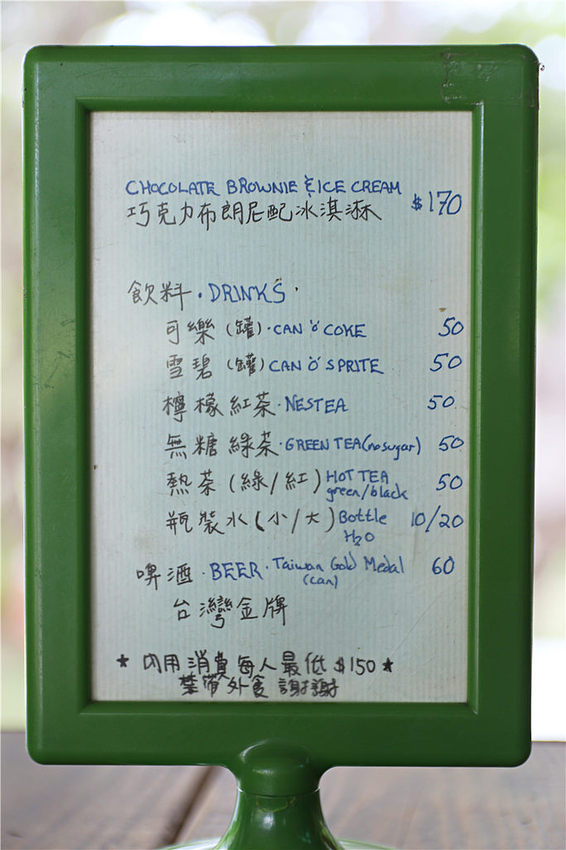 CHOCOLATE BROWNIE & ICE CREAM $170
巧克力布朗尼配冰淇淋
飲料・DRINKS・
可樂(罐)・CAN 'o' COKE 50
雪碧(罐) CAN 'o' SPRITE 50
檸檬紅茶・NESTEA 50
無糖綠茶・GREEN TEA (no sugar) 50
熱茶(綠/紅) HOT TEA green/black 50
瓶裝水(小/大) Bottle H₂O 10/20
啤酒・BEER・Taiwan Gold Medal (can) 60
台灣金牌
★ 內用消費每人最低 $150 ★
禁帶外食 謝謝